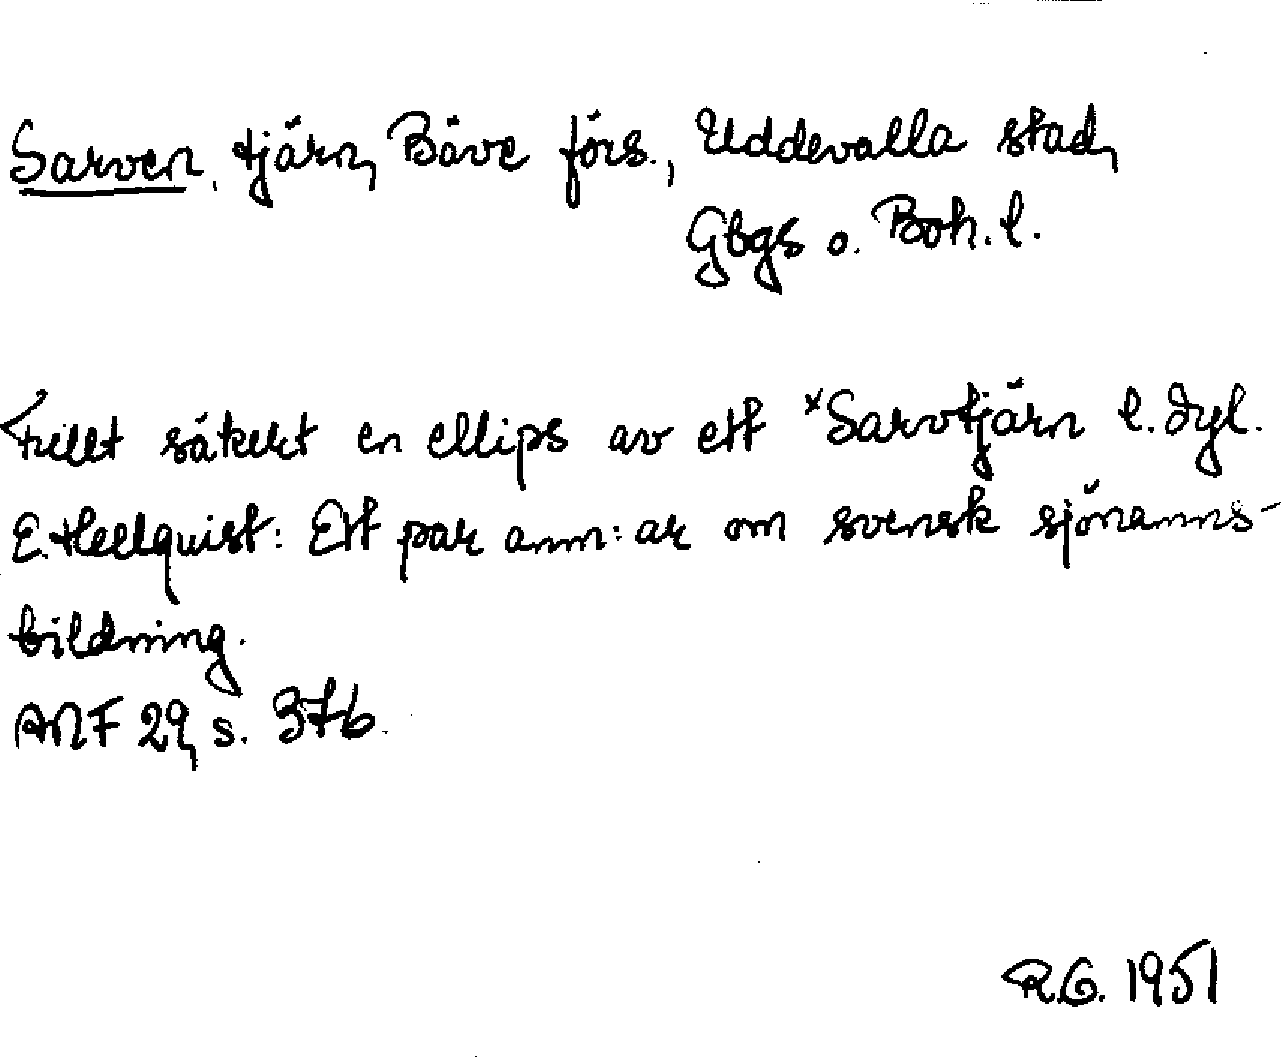 Sarven, tjärn, Bäve förs., Uddevalla stad,
Gbgs o. Boh. l.
Fullt säkert en ellips av ett *Sarvtjärn l. dyl.
E. Hellquist: Ett par anm:ar om svensk sjönamns-
bildning.
ANF 29, s. 376.
R.G. 1951